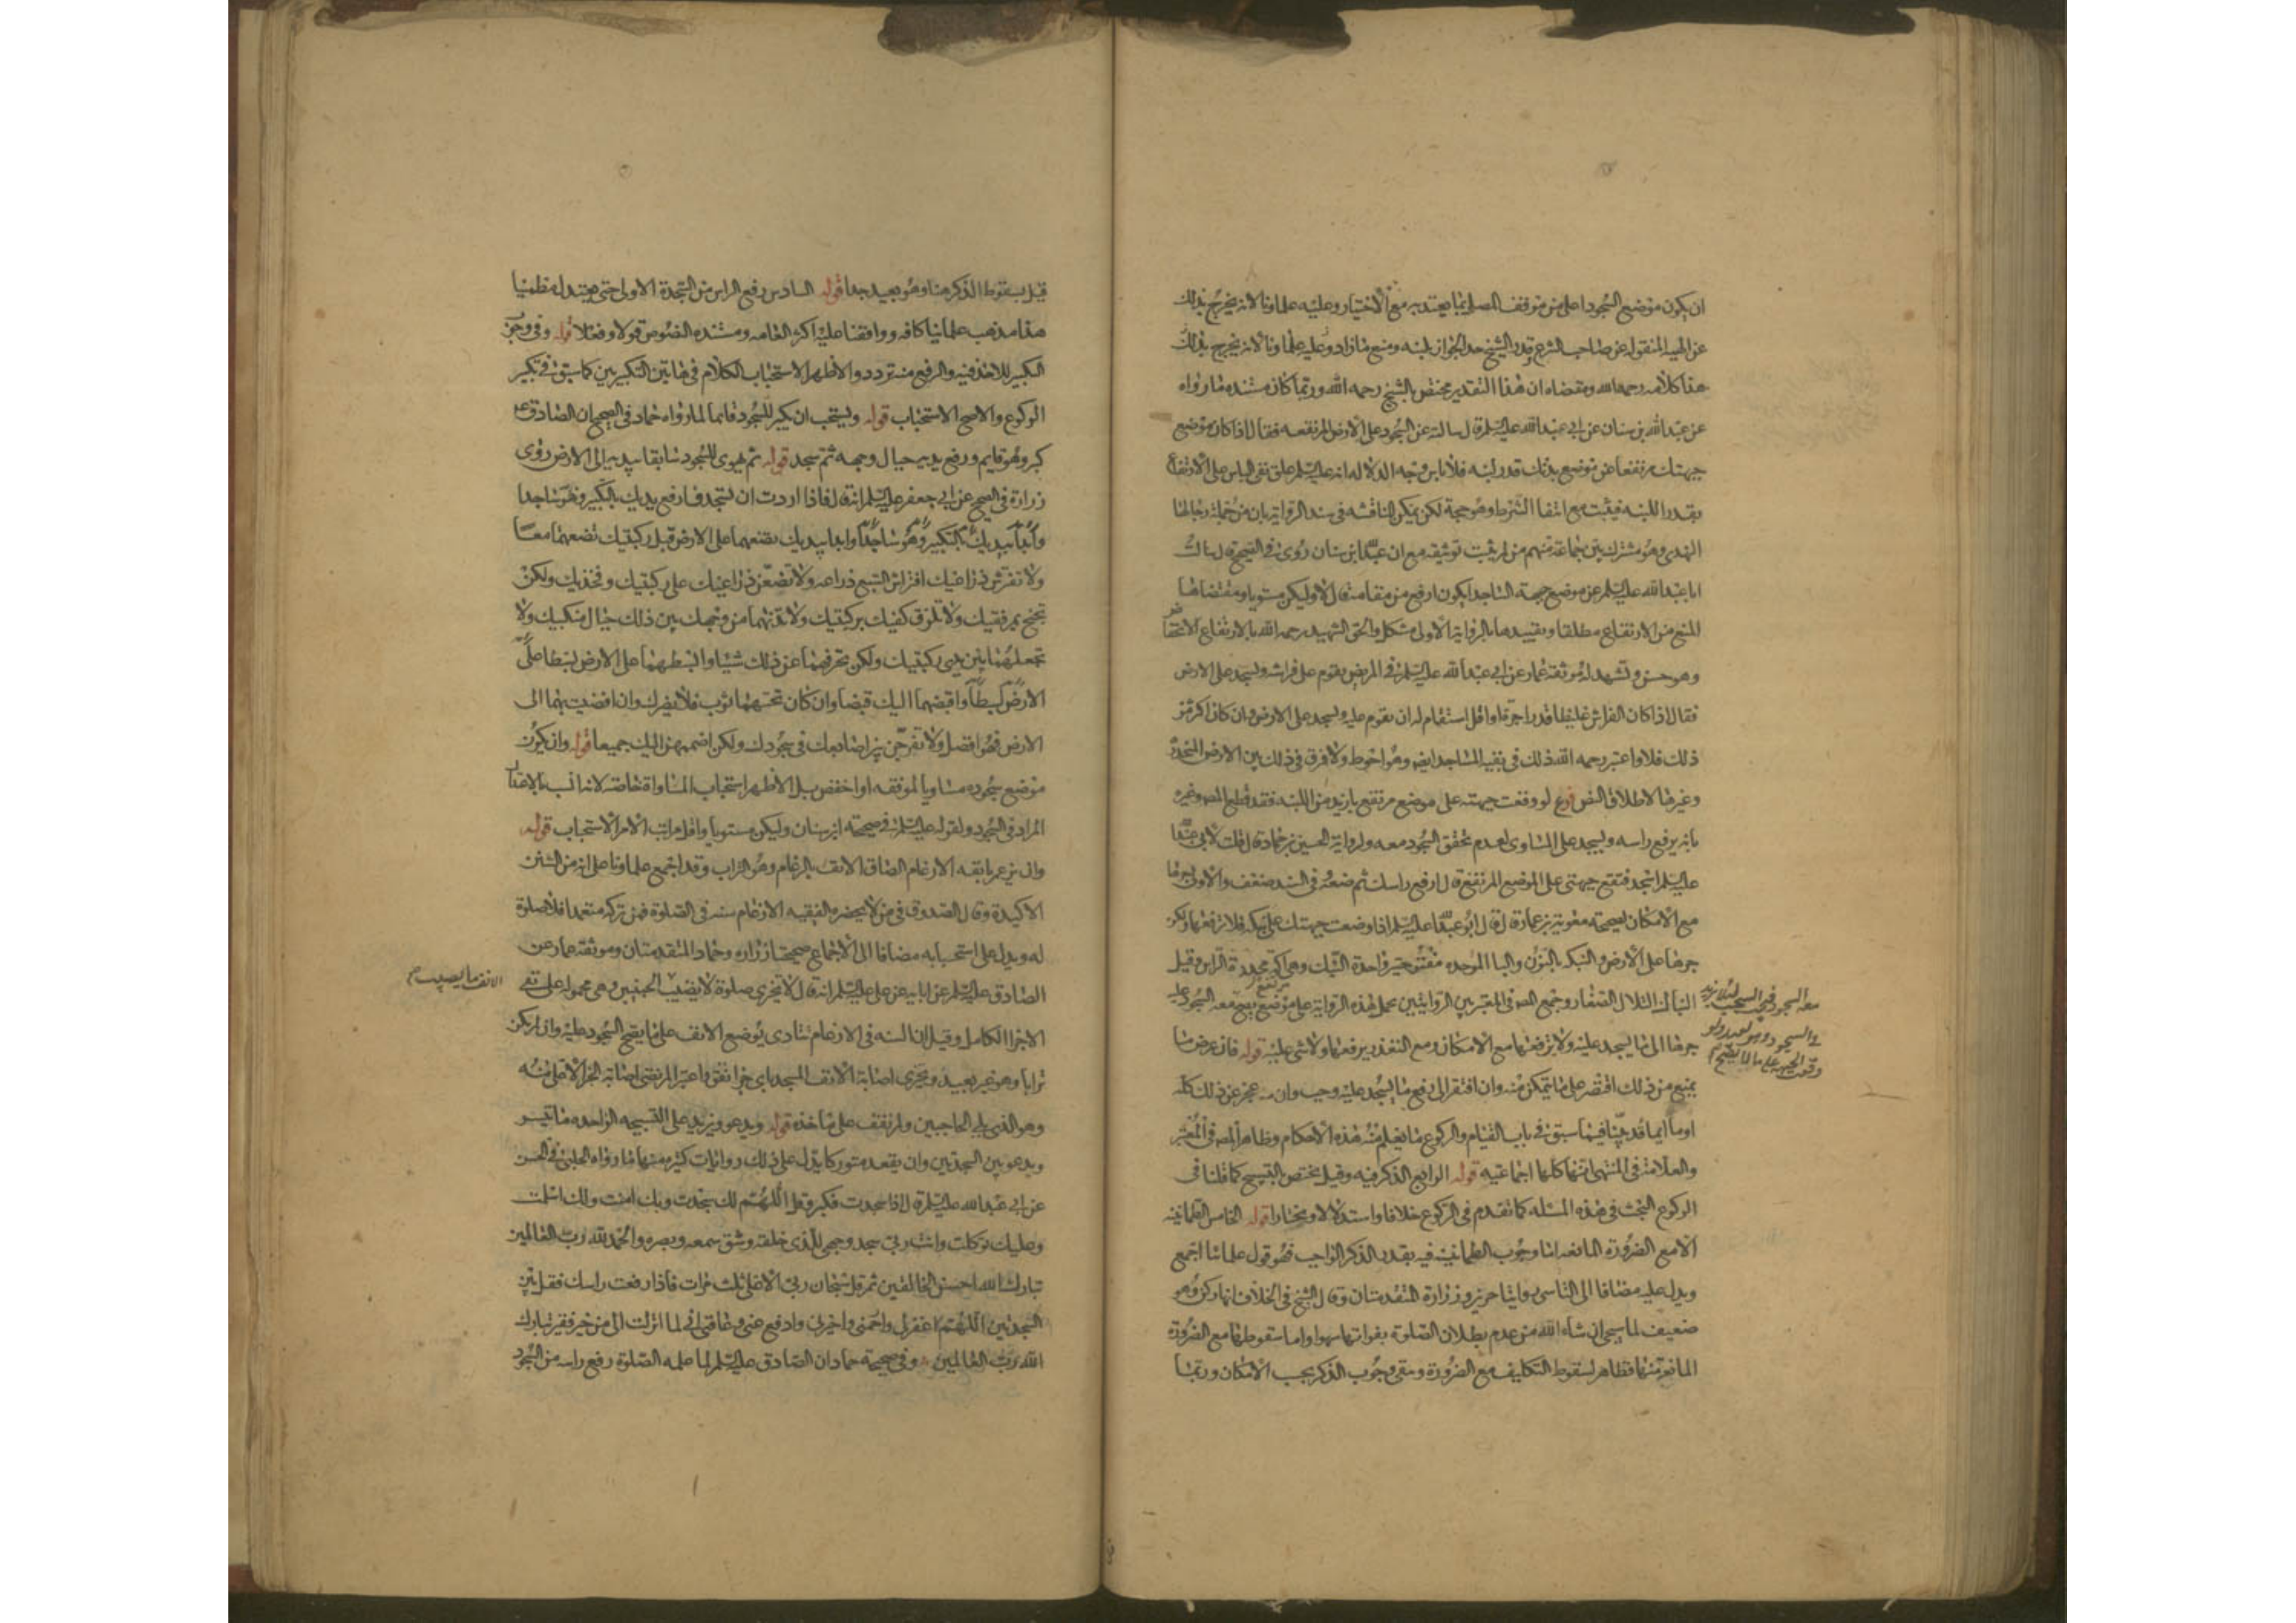 ان يكون موضع السجود اعلى من موقف المصلي بما يعتد به مع الاختيار وعليه علماونا لانه يخرج بذلك
عن الهيئة المنقولة عن صاحب الشرع وقدر الشيخ حد الجواز بلبنة ومنع ما زاد وعليه علماونا لانه يخرج بذلك
هذا كلامه رحمه الله ومقتضاه ان هذا التقدير مختص بالشيخ رحمه الله وربما كان مستنده ما رواه
عن عبد الله بن سنان عن ابي عبد الله عليه السلم قال سالته عن السجود على الارض المرتفعه فقال اذا كان موضع
جبهتك مرتفعا عن موضع بدنك قدر لبنه فلا باس وجه الدلاله انه عليه السلم علق نفي الباس على الارتفاع
بقدر اللبنه فيثبت مع انتفا الشرط وهو حجة لكن يمكن المناقشه في سند الرواية بان من جملة رجالها
النهدي وهو مشترك بين جماعة منهم من لم يثبت توثيقه مع ان عبد الله بن سنان روى في الصحيح قال سالت
ابا عبد الله عليه السلم عن موضع جبهة الساجد ايكون ارفع من مقامه قال لا وليكن مستويا ومقتضاها
المنع من الارتفاع مطلقا وتقييدها بالرواية الاولى مشكل والحق الشهيد رحمه الله بالارتفاع الانخفاض
وهو حسن وتشهد له موثقة عمار عن ابي عبد الله عليه السلم في المريض يقوم على فراشه ويسجد على الارض
فقال اذا كان الفراش غليظا قدر اجرة او اقل استقام له ان يقوم عليه ويسجد على الارض وان كان اكثر من
ذلك فلا واعتبر رحمه الله ذلك في بقية المساجد ايضا وهو احوط ولا فرق في ذلك بين الارض المنحدرة
وغيرها لاطلاق النص فرع لو وقعت جبهته على موضع مرتفع بازيد من اللبنه فقد قطع المص وغيره
بانه يرفع راسه ويسجد على المساوي لعدم تحقق السجود معه ولرواية الحسين بن حماد قال قلت لابي عبد الله
عليه السلم اسجد فتقع جبهتي على الموضع المرتفع قال ارفع راسك ثم ضعه وفي السند ضعف والاولى جرها
مع الامكان لصحيحة معوية بن عمار قال قال ابو عبد الله عليه السلم اذا وضعت جبهتك على نبكة فلا ترفعها ولكن
جرها على الارض والنبكه بالنون والبا الموحده مفتوحتين واحدة النبك وهي اكمة محددة الراس وقيل
النباك التلال الصغار وجمع المص في المعتبر بين الروايتين بحمل هذه الرواية على موضع يصح معه السجود عليه
مرتفع
جرها الى ما يسجد عليه ولا يرفعها مع الامكان ومع التعذر يرفعها ولا شي عليه قوله فان عرض ما
يمنع من ذلك اقتصر على ما يتمكن منه وان افتقر الى رفع ما يسجد عليه وجب وان عجز عن ذلك كله
اوما ايما قد بينا فيما سبق في باب القيام والركوع ما يعلم منه هذه الاحكام وظاهر المص في المعتبر
والعلامة في المنتهى انها كلها اجماعيه قوله الرابع الذكر فيه وقيل يختص بالتسبيح كما قلنا في
الركوع البحث في هذه المسئلة كما تقدم في الركوع خلافا واستدلالا ومختارا قوله الخامس الطمانينه
الا مع الضرورة المانعه اما وجوب الطمانينه فيه بقدر الذكر الواجب فهو قول علمائنا اجمع
ويدل عليه مضافا الى التاسي روايتا حريز وزرارة المتقدمتان وقال الشيخ في الخلاف انها ركن وهو
ضعيف لما سيجي ان شاء الله من عدم بطلان الصلوة بفواتها سهوا واما سقوطها مع الضرورة
المانعة منها فظاهر لسقوط التكليف مع الضرورة وبقي وجوب الذكر بحسب الامكان وربما
معه السجود
والسجود
وقعت الجبهه على ما لا يصح
قيل بسقوط الذكر هنا وهو بعيد جدا قوله السادس رفع الراس من السجدة الاولى حتى يعتدل مطمئنا
هذا مذهب علمائنا كافه ووافقنا عليه اكثر العامه ومستنده النصوص قولا وفعلا قوله وفي وجوب
التكبير للاخذ فيه والرفع منه تردد والاظهر الاستحباب الكلام في هاتين التكبيرتين كما سبق في تكبير
الركوع والاصح الاستحباب قوله ويستحب ان يكبر للسجود قائما لما رواه حماد في الصحيح ان الصادق ع
كبر وهو قايم ورفع يديه حيال وجهه ثم سجد قوله ثم يهوي للسجود سابقا بيديه الى الارض روى
زرارة في الصحيح عن ابي جعفر عليه السلم انه قال فاذا اردت ان تسجد فارفع يديك بالتكبير وخر ساجدا
وابدا بيديك بالتكبير وهو ساجدا وابدا بيديك تضعهما على الارض قبل ركبتيك تضعهما معا
ولا تفترش ذراعيك افتراش السبع ذراعه ولا تضعن ذراعيك على ركبتيك وفخذيك ولكن
تجنح بمرفقيك ولا تلزق كفيك بركبتيك ولا تدنهما من وجهك بين ذلك حيال منكبيك ولا
تجعلهما بين يدي ركبتيك ولكن تحرفهما عن ذلك شيئا وابسطهما على الارض بسطا على
الارض بسطا واقبضهما اليك قبضا وان كان تحتهما ثوب فلا يضرك وان افضيت بهما الى
الارض فهو افضل ولا تفرجن بين اصابعك في سجودك ولكن اضممهن اليك جميعا قوله وان يكون
موضع سجوده مساويا لموقفه او اخفض بل الاظهر استحباب المساواة خاصة لانه انسب بالاعتدال
المراد في السجود ولقوله عليه السلم في صحيحة ابن سنان وليكن مستويا واقل مراتب الامر الاستحباب قوله
وان يرغم بانفه الارغام الصاق الانف بالرغام وهو التراب وقد اجمع علماونا على انه من السنن
الاكيدة وقال الصدوق في من لا يحضره الفقيه الارغام سنة في الصلوة فمن تركه متعمدا فلا صلوة
له ويدل على استحبابه مضافا الى الاجماع صحيحتا زراره وحماد المتقدمتان وموثقة عمار عن
الصادق عليه السلم عن ابائه عن علي عليه السلم انه قال لا تجزي صلوة لا يصيب الجبينين وهي محمولة على نفي
الانف ما يصيب
الاجزا الكامل وقيل ان السنه في الارغام تتادى بوضع الانف على ما يصح السجود عليه وان لم يكن
ترابا وهو غير بعيد ويجزي اصابة الانف المسجد باي جزء اتفق واعتبر المرتضى اصابة الجزء الاعلى منه
وهو الذي يلي الحاجبين ولم نقف على ماخذه قوله ويدعو ويزيد على التسبيحه الواحده ما تيسر
ويدعو بين السجدتين وان يقعد متوركا يدل على ذلك روايات كثيره منها ما رواه الحلبي في الحسن
عن ابي عبد الله عليه السلم قال اذا سجدت فكبر وقل اللهم لك سجدت وبك امنت ولك اسلمت
وعليك توكلت وانت ربي سجد وجهي للذي خلقه وشق سمعه وبصره والحمد لله رب العالمين
تبارك الله احسن الخالقين ثم قل سبحان ربي الاعلى ثلث مرات فاذا رفعت راسك فقل بين
السجدتين اللهم اغفر لي وارحمني واجرني وادفع عني وعافني اني لما انزلت الي من خير فقير تبارك
الله رب العالمين وفي صحيحة حماد ان الصادق عليه السلم لما علمه الصلوة رفع راسه من السجود